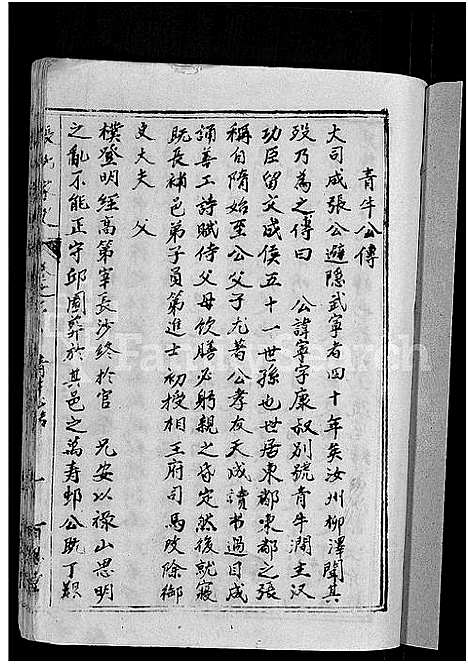 青牛公傳
大司成張公避隱武寧者四十年矣汝州柳澤聞其
歿乃為之傳曰 公諱寧字康叔別號青牛澗主漢
功臣留文成侯五十一世孫也世居東都東都之張
稱自隋始至公父子尤著公孝友天成讀书過目成
誦善工詩賦侍父母飲膳必躬親之昏定然後就寢
既長補邑弟子員第進士初授相王府司馬改除御
史大夫 父
樸登明經高第宰長沙終於官 兄安以祿山思明
之亂不能正守邱園葬於其邑之萬寿鄉公既丁艱
FamilySearch